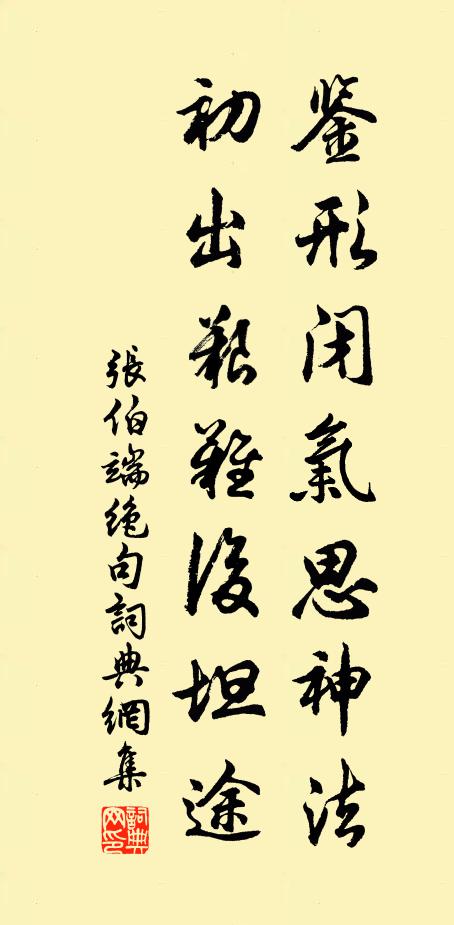 鉴形闭氣思神法
初出艰難後坦途
張伯端绝句詞典網集
詞典
网印